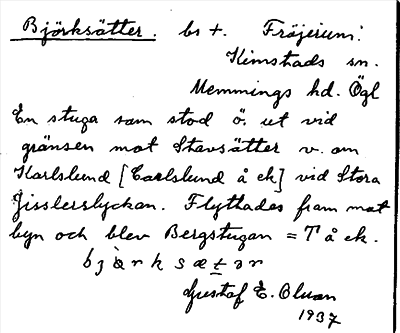 Björksätter. bs+. Fröjerum:
Kimstads sn.
Memmings hd. Ögl
En stuga som stod ö. ut vid
gränsen mot Stavsätter v. om
Karlslund [Carlslund å ek] vid Stora
Gisslerslyckan. Flyttades fram mot
byn och blev Bergstugan = T å ek.
bjärksætər
Gustaf E. Olsson
1937